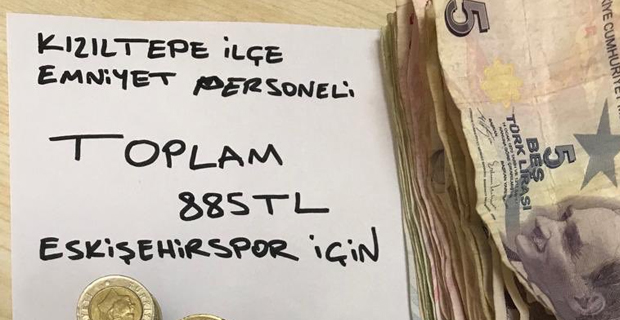 KIZILTEPE İLÇE
EMNİYET PERSONELİ
TOPLAM
885TL
ESKİŞEHİRSPOR İÇİN
5
BEŞ
TÜRK LİRASI
5